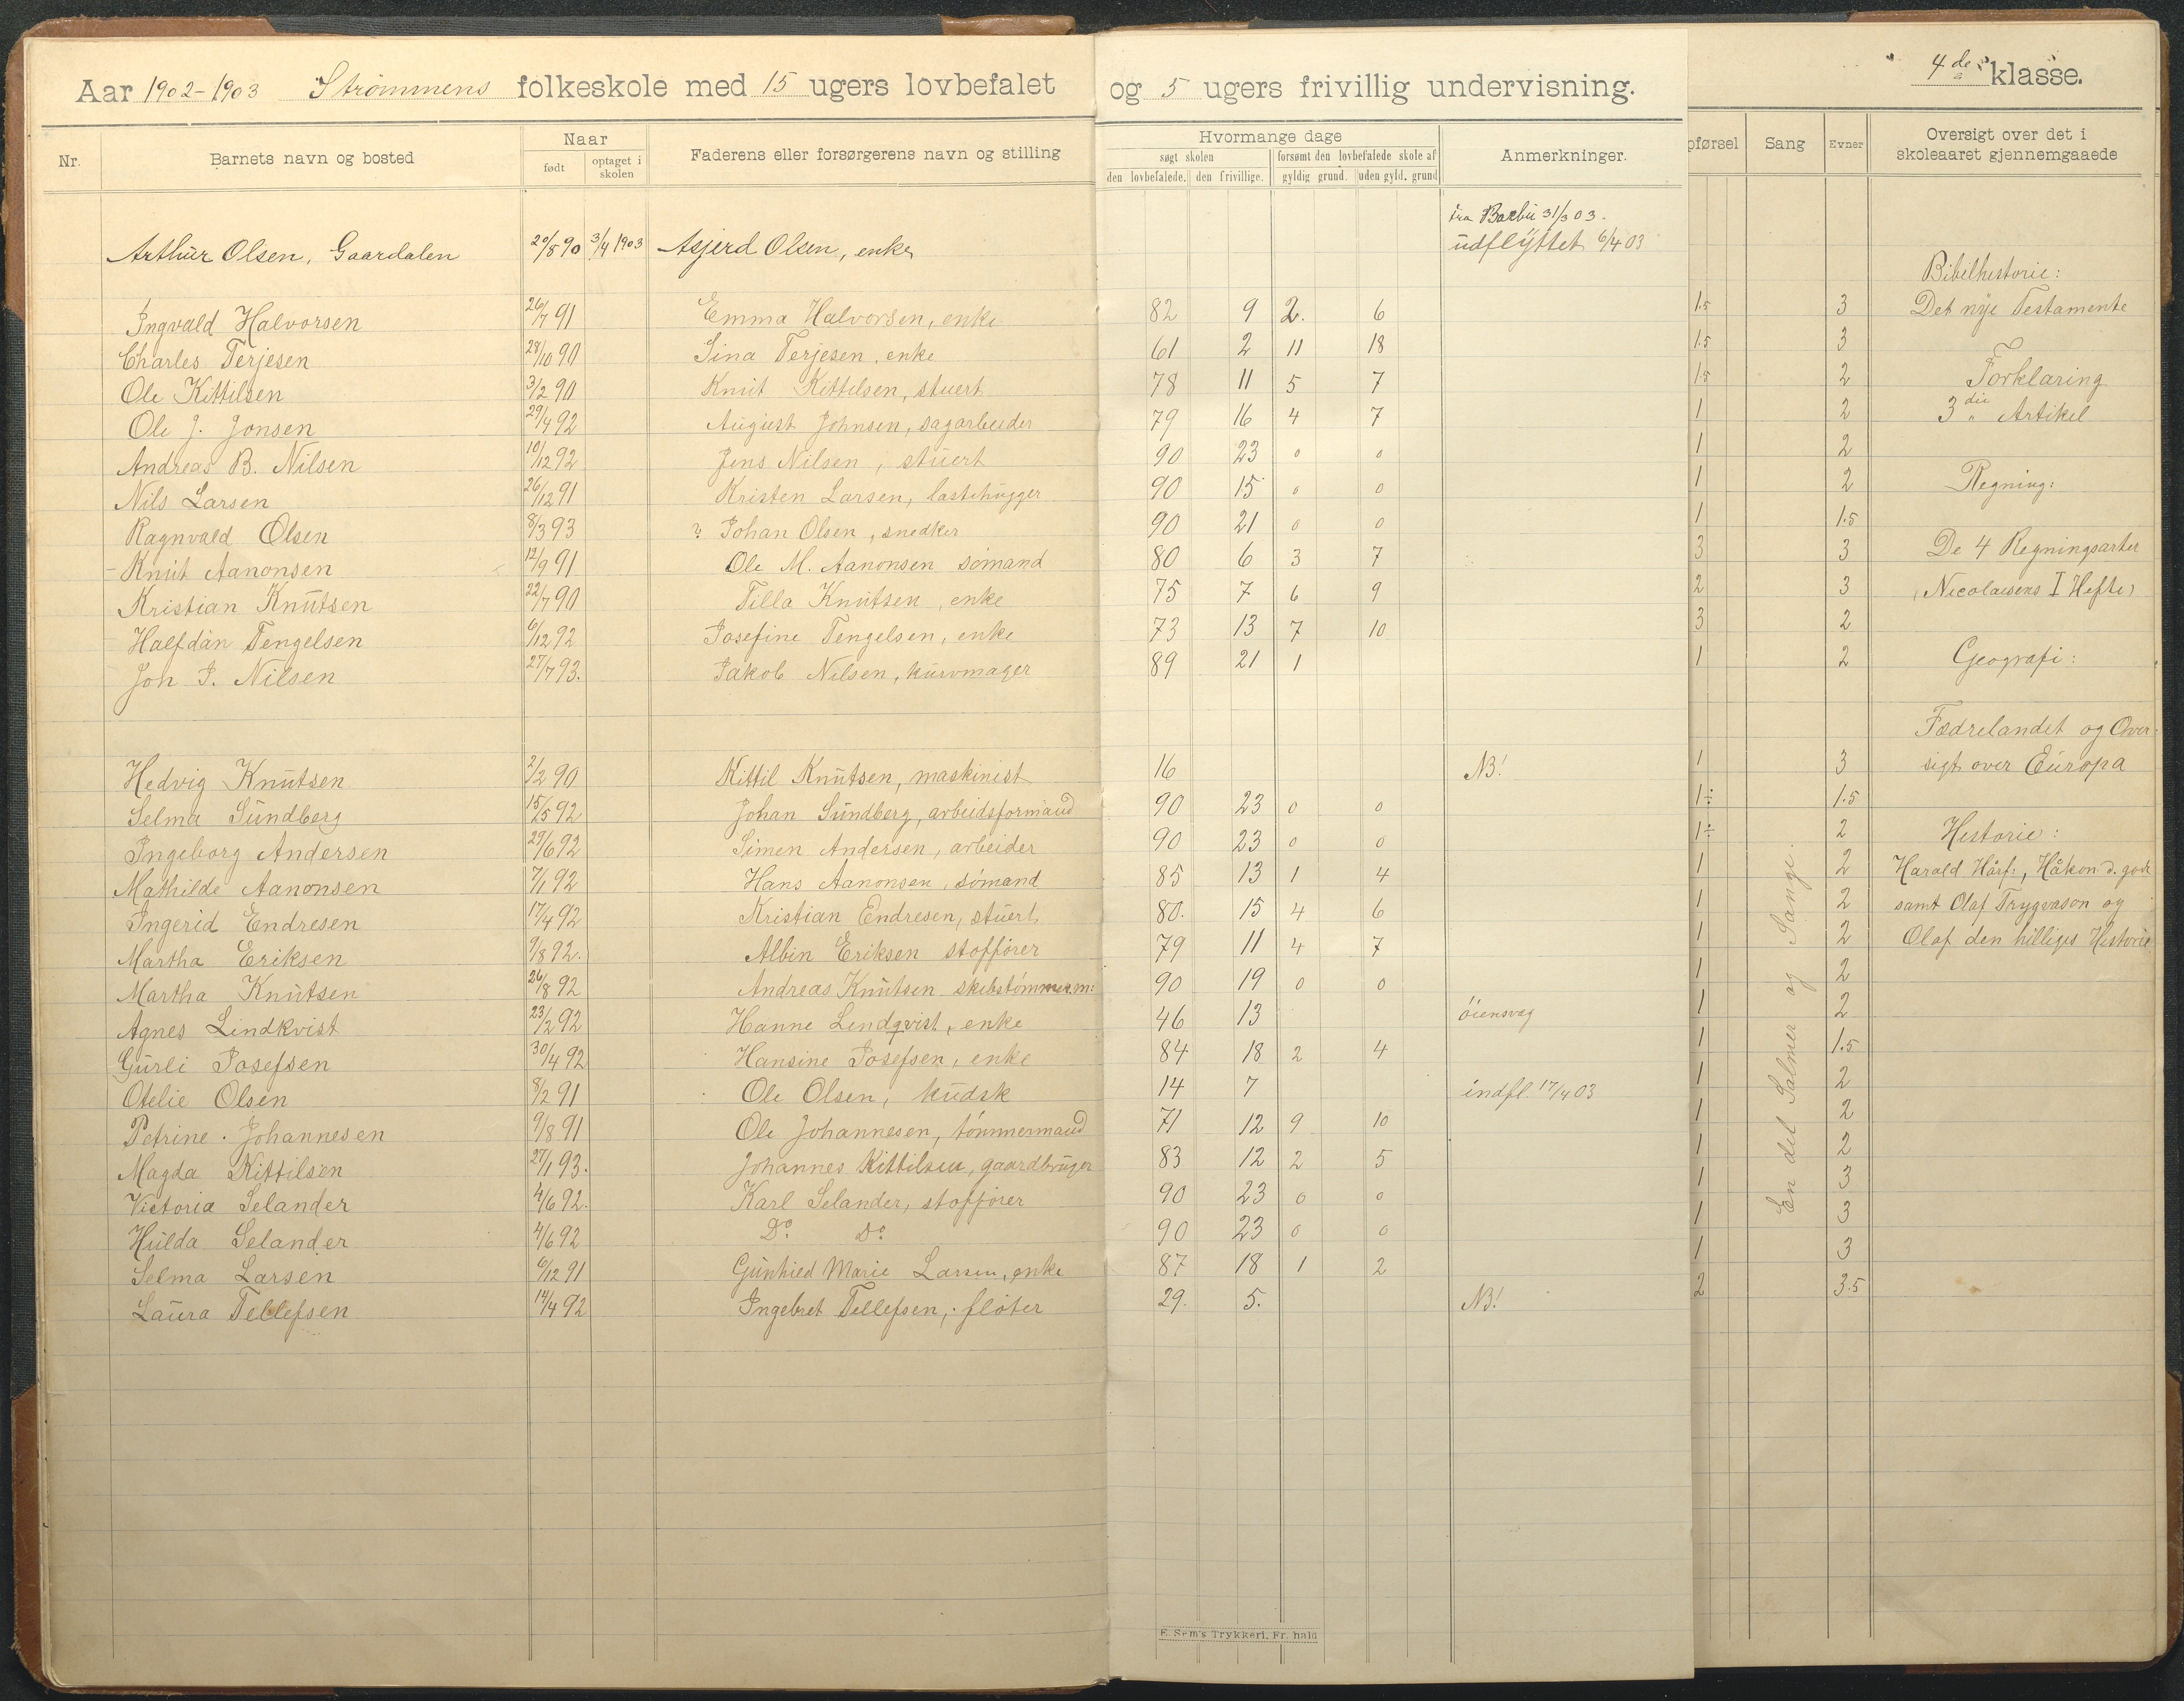 Aar 1902-1903 Strømmens folkeskole med 15 ugers lovbefalet og 5 ugers frivillig undervisning. 4de klasse.
Nr. Barnets navn og bosted Naar født optaget i skolen Faderens eller forsørgerens navn og stilling
Hvormange dage søgt skolen den lovbefalede. den frivillige. forsømt den lovbefalede skole af gyldig grund. uden gyld. grund Anmerkninger.
pførsel Sang Evner Oversigt over det i skoleaaret gjennemgaaede
fra Barbu 31/3 03.
Arthur Olsen, Gaardalen 20/5 90 3/4 1903 Asjerd Olsen, enke udflyttet 6/4 03
Ingvald Halvorsen 26/7 91 Emma Halvorsen, enke 82 9 2. 6 1.5 3
Charles Terjesen 28/10 90 Sina Terjesen, enke 61 2 11 18 1.5 3
Ole Kittilsen 3/2 90 Knut Kittilsen, stuert 78 11 5 7 1.5 2
Ole J. Jonsen 29/4 92 August Johnsen, sagarbeider 79 16 4 7 1 2
Andreas B. Nilsen 10/12 92 Jens Nilsen, stuert 90 23 0 0 1 2
Nils Larsen 26/12 91 Kristen Larsen, lastehugger 90 15 0 0 1 2
Ragnvald Olsen 8/3 93 ? Johan Olsen, snedker 90 21 0 0 1 1.5
Knut Aanonsen 12/9 91 Ole M. Aanonsen sómand 80 6 3 7 3 3
Kristian Knutsen 22/7 90 Tilla Knutsen, enke 75 7 6 9 2 3
Halfdan Tengelsen 6/12 92 Josefine Tengelsen, enke 73 13 7 10 3 2
Jon J. Nilsen 27/7 93. Jakob Nilsen, kurvmager 89 21 1 1 2
Hedvig Knutsen 2/2 90 Kittil Knutsen, maskinist 16 NB! 1 3
Selma Sundberg 15/5 92 Johan Sundberg, arbeidsformand 90 23 0 0 1÷ 1.5
Ingeborg Andersen 29/6 92 Simen Andersen, arbeider 90 23 0 0 1÷ 2
Mathilde Aanonsen 7/1 92 Hans Aanonsen, sómand 85 13 1 4 1 2
Ingerid Endresen 17/4 92 Kristian Endresen, stuert 80. 15 4 6 1 2
Martha Eriksen 9/8 92. Albin Eriksen stoffører 79 11 4 7 1 2
Martha Knutsen 26/8 92 Andreas Knutsen skibstømmerm: 90 19 0 0 1 2
Agnes Lindkvist 23/2 92 Hanne Lindqvist, enke 46 13 óiensvag 1 2
Gurli Josefsen 30/4 92 Hansine Josefsen, enke 84 18 2 4 1 1.5
Otelie Olsen 8/2 91 Ole Olsen, kudsk 14 7 indfl. 17/4 03 1 2
Petrine Johannesen 9/8 91 Ole Johannesen, tómmermand 71 12 9 10 1 2
Magda Kittilsen 27/1 93. Johannes Kittilsen, gaardbruger 83 12 2 5 1 2
Victoria Selander 4/6 92. Karl Selander, stoffører 90 23 0 0 1 3
Hulda Selander 4/6 92 Do Do 90 23 0 0 1 3
Selma Larsen 6/12 91 Gunhild Marie Larsen, enke 87 18 1 2 1 3
Laura Tellefsen 14/4 92 Ingebret Tellefsen, fløter 29. 5. NB! 2 3.5
En del Salmer og Sange.
Bibelhistorie:
Det nye Testamente
Forklaring
3die Artikel
Regning:
De 4 Regningsarter
(Nicolaisens I Hefte)
Geografi:
Fædrelandet og Over-
sigt over Europa
Historie:
Harald Hårf:, Håkon d. gode
samt Olaf Trygvason og
Olaf den hilliges Historie
E. Sem's Trykkeri, Fr. hald